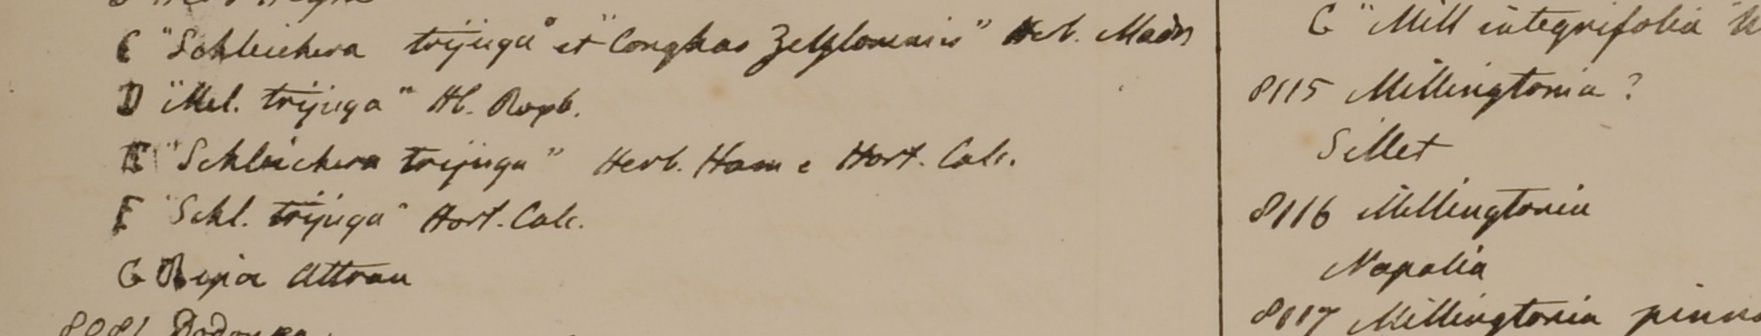 C "Schleichera trijuga" et "Conghas Zeylonensis" Herb. Madr
D "Mel. trijuga" Hb. Roxb.
E "Schleichera trijuga" Herb. Ham e Hort. Calc.
F "Schl. trijuga" Hort. Calc.
G Ripa Attran
8081 Dodonæa
C "Mill integrifolia"
8115 Millingtonia ?
Sillet
8116 Millingtonia
Napalia
8117 Millingtonia pinn